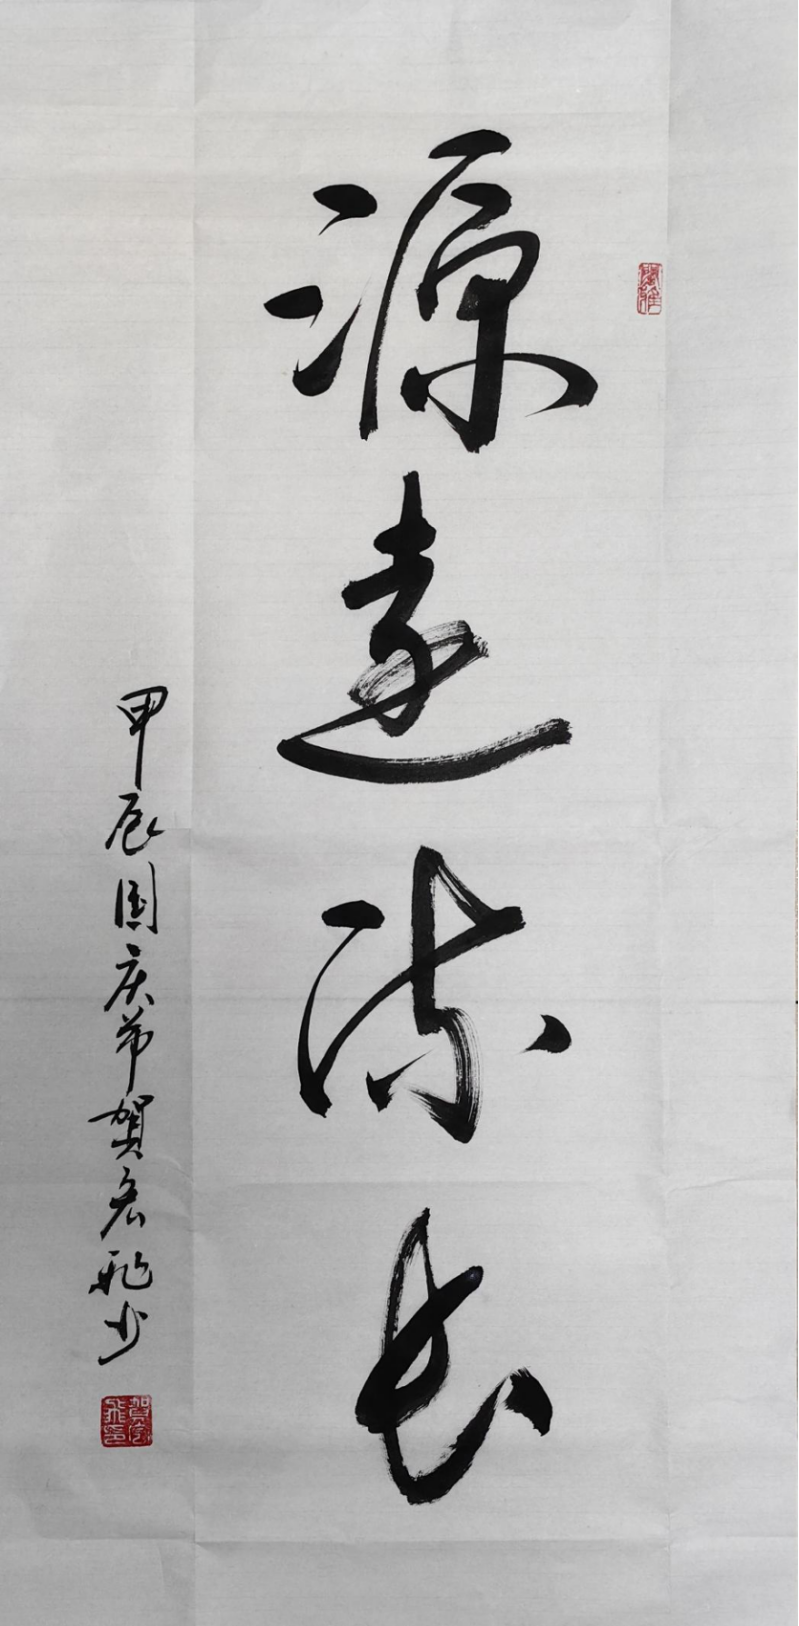 源远流长
甲辰国庆节贺宏飞书
贺宏飞印